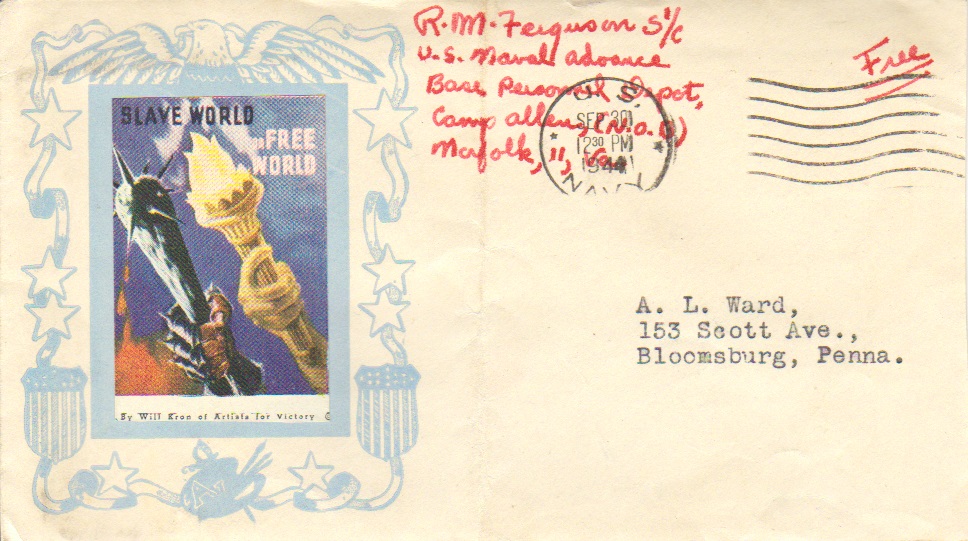 SLAVE WORLD
or FREE
WORLD
By Will Kron of Artists for Victory ©
R. M. Ferguson S 1/c
U.S. Naval Advance
Base Personnel Depot,
Camp Allen, (N.O.B)
Norfolk, 11, Va.
U.S.
SEP 30
12 30 PM
1944
NAVY
Free
A. L. Ward,
153 Scott Ave.,
Bloomsburg, Penna.